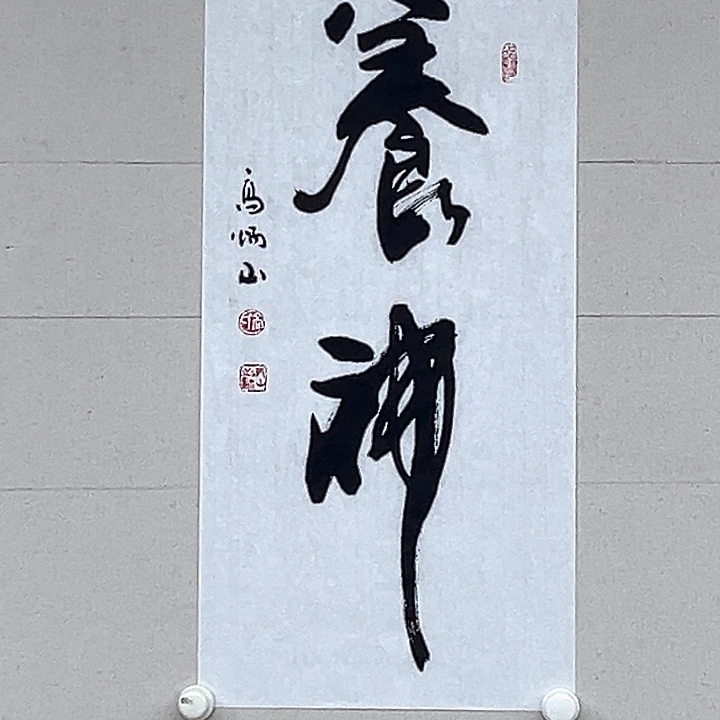 養神
高炳山